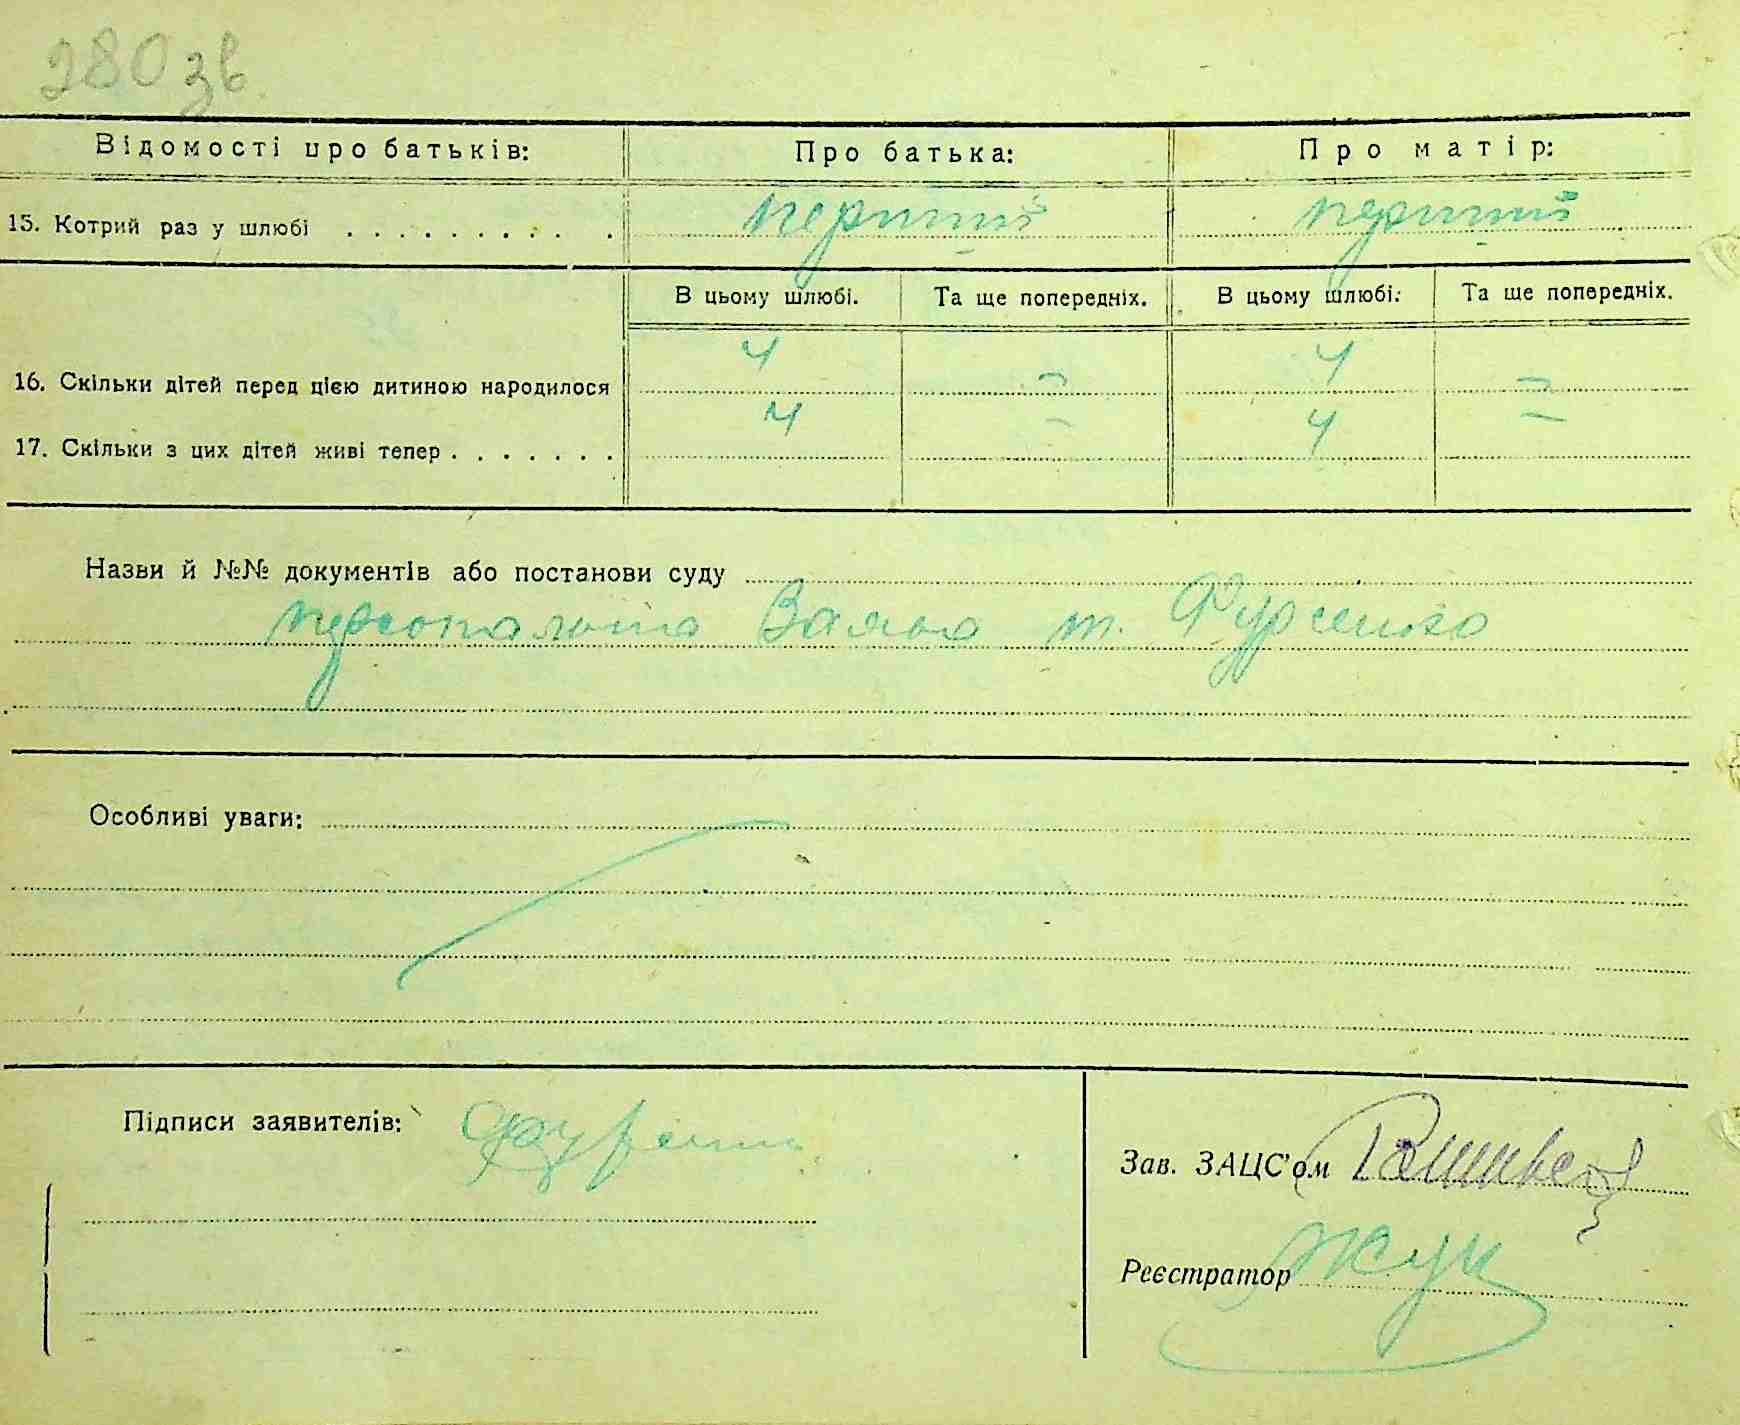 280 зв.
Відомості про батьків: Про батька: Про матір:
15. Котрий раз у шлюбі . . . . . . . . . . перший перший
В цьому шлюбі. Та ще попередніх. В цьому шлюбі: Та ще попередніх.
16. Скільки дітей перед цією дитиною народилося 4 – 4 –
17. Скільки з цих дітей живі тепер . . . . . . . 4 – 4 –
Назви й №№ документів або постанови суду
персональна Заява т. Фурсенко
Особливі уваги:
Підписи заявителів:
Зав. ЗАЦС'ом
Реєстратор Жук